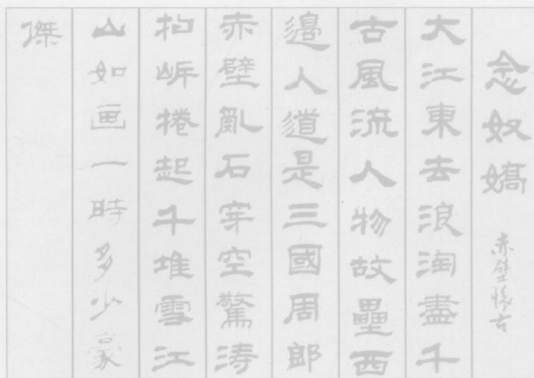 念奴嬌 赤壁懷古
大江東去浪淘盡千
古風流人物故壘西
邊人道是三國周郎
赤壁亂石穿空驚涛
拍岍捲起千堆雪江
山如画一時多少豪
傑